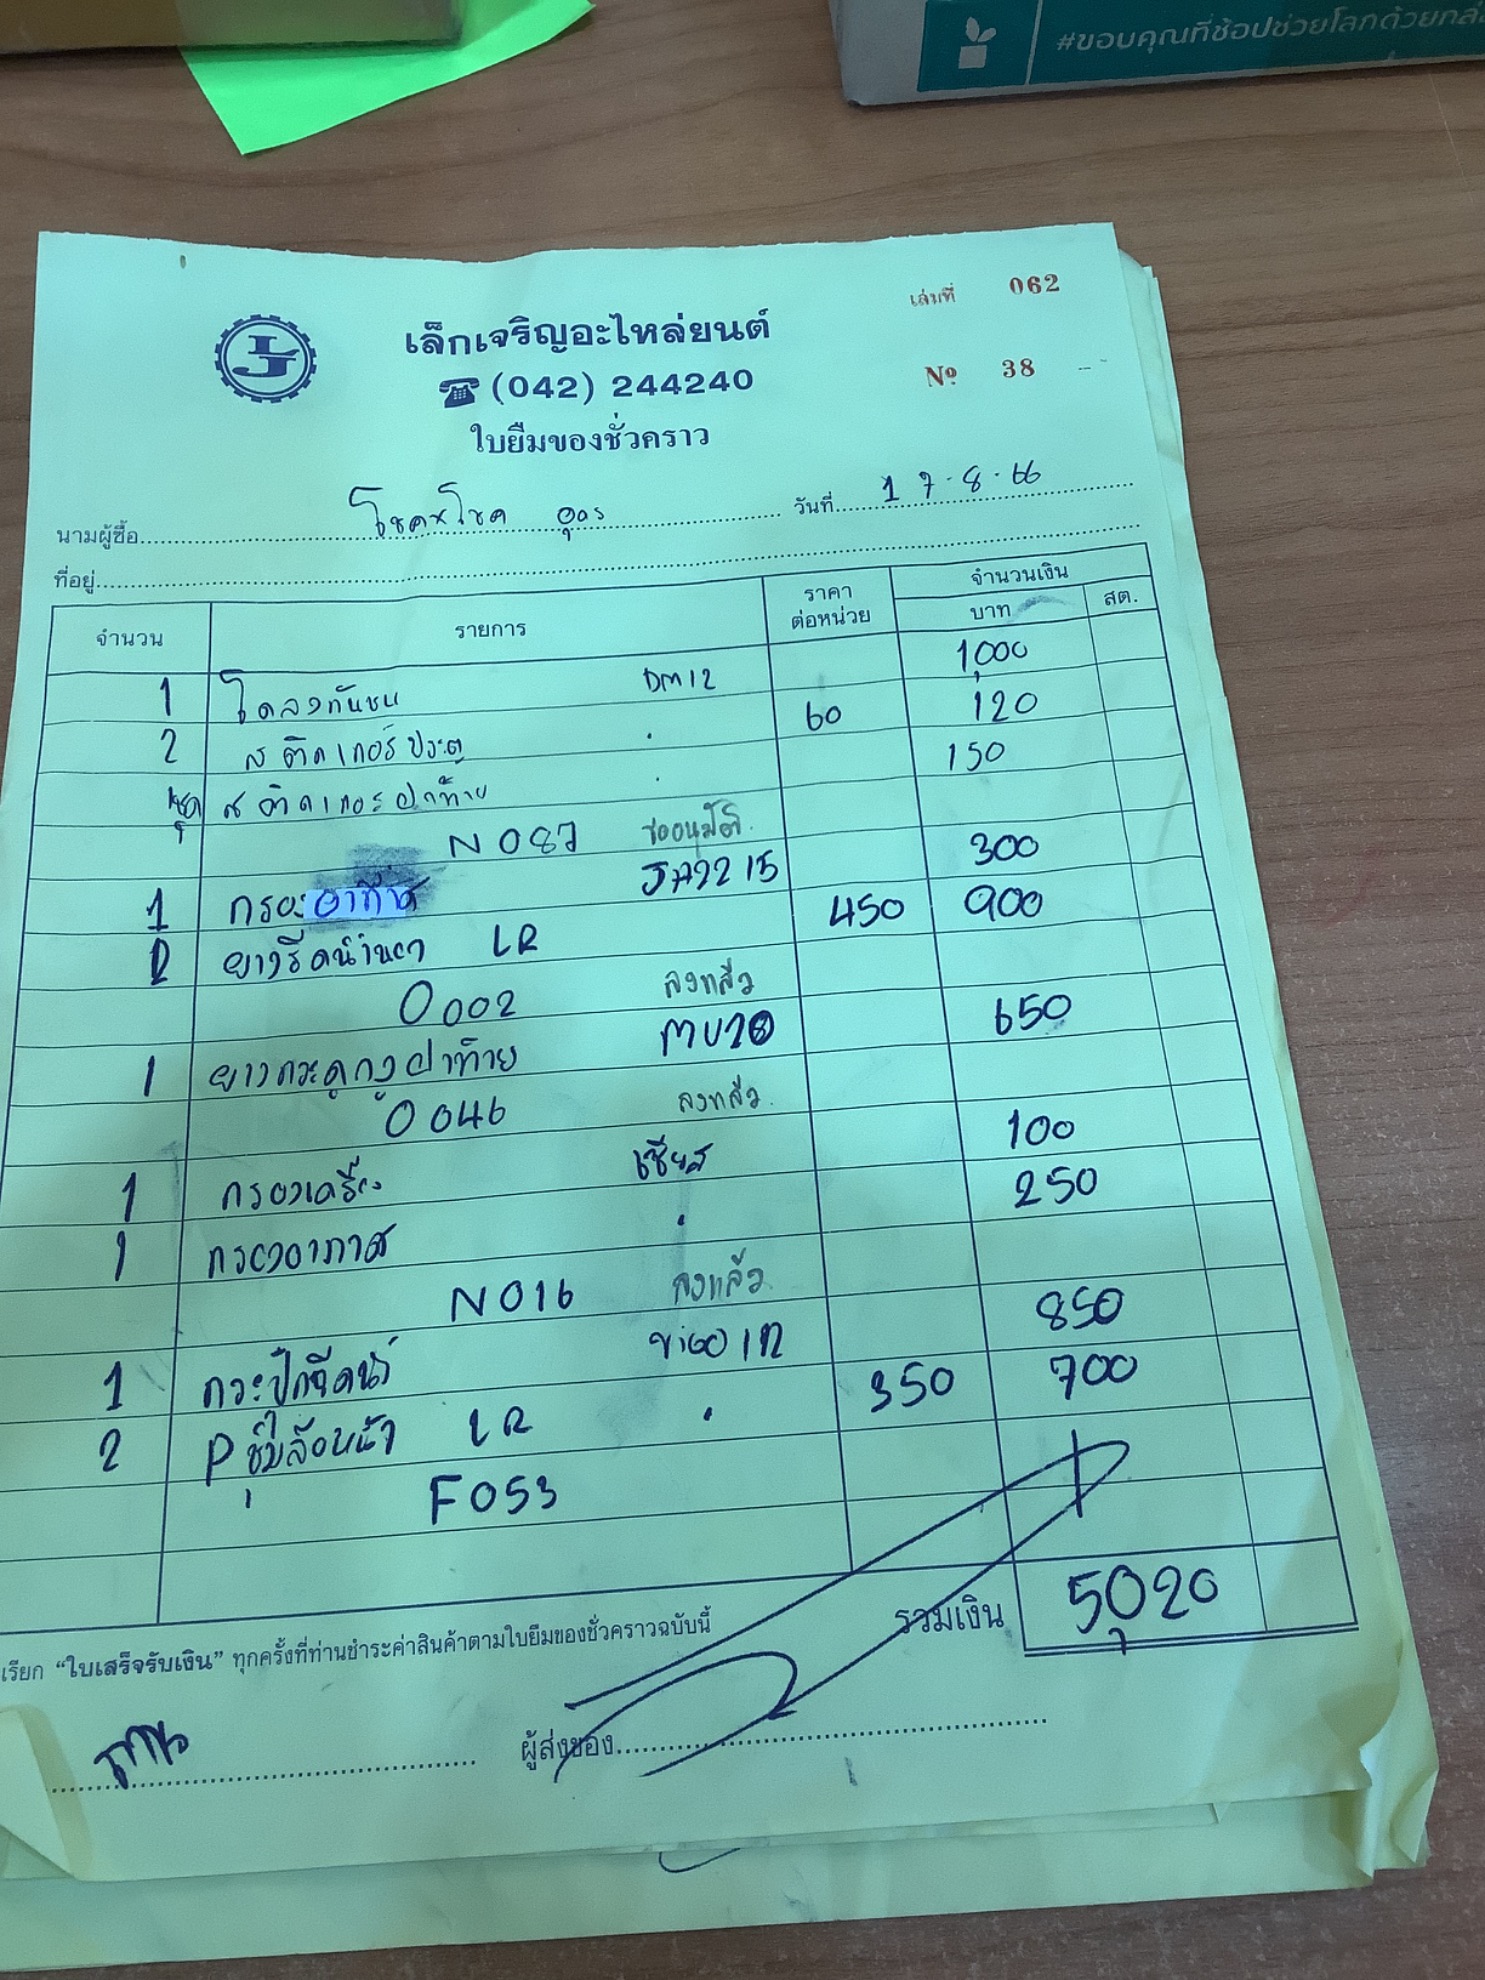 #ขอบคุณที่ช้อปช่วยโลกด้วยกล่
เล่มที่ 062
เล็กเจริญอะไหล่ยนต์
☎ (042) 244240
№ 38
ใบยืมของชั่วคราว
นามผู้ซื้อ โชคชัโชค อุดร วันที่ 17-8-66
ที่อยู่
จำนวน รายการ ราคาต่อหน่วย จำนวนเงิน
บาท สต.
1 โดลงกันชน DM12 1,000
2 สติกเกอร์ประตู 60 120
ชุด สติกเกอร์ฝาท้าย 150
N087 ขออนุมัติ
1 กรอง JA2215 300
2 ยางรีดน้ำนอก LR 450 900
0002 ลงแล้ว
1 ยางกระดูกงูฝาท้าย MU 650
0046 ลงแล้ว
1 กรองเครื่อง เซียส 100
1 กรองอากาศ 250
N016 ลงแล้ว
1 กระป๋กฉีดน้ำ vigo 850
2 Pซุ้มล้อหน้า LR 350 700
F053
รวมเงิน 5,020
เรียก “ใบเสร็จรับเงิน” ทุกครั้งที่ท่านชำระค่าสินค้าตามใบยืมของชั่วคราวฉบับนี้
ผู้ส่งของ